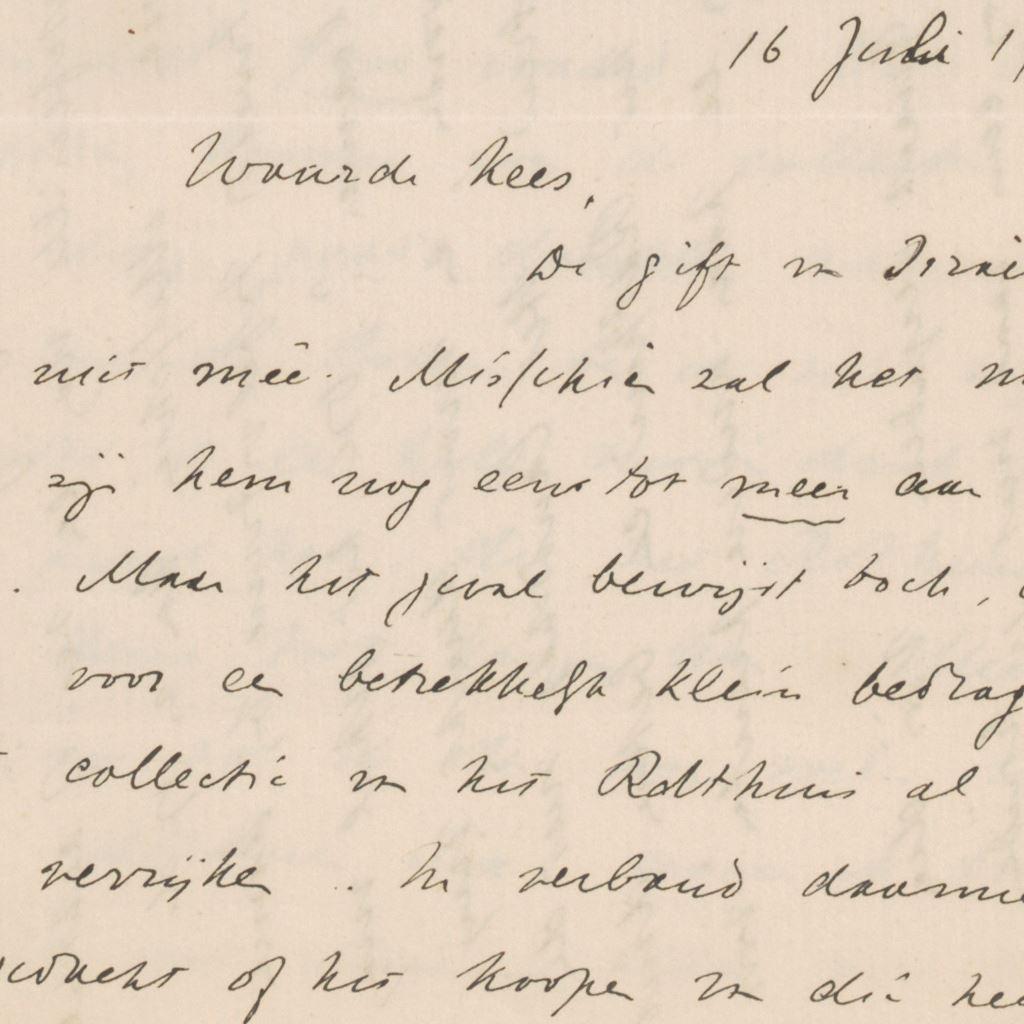 16 Juli 1
Waarde Kees,
De gift van
niet meê. Misschien zal het
zij hem nog eens tot meer aan
. Maar het geval bewijst toch,
voor een betrekkelijk klein bedrag
collectie van het Raadhuis al
verrijken .. In verband daarmee
gedacht of het koopen van die